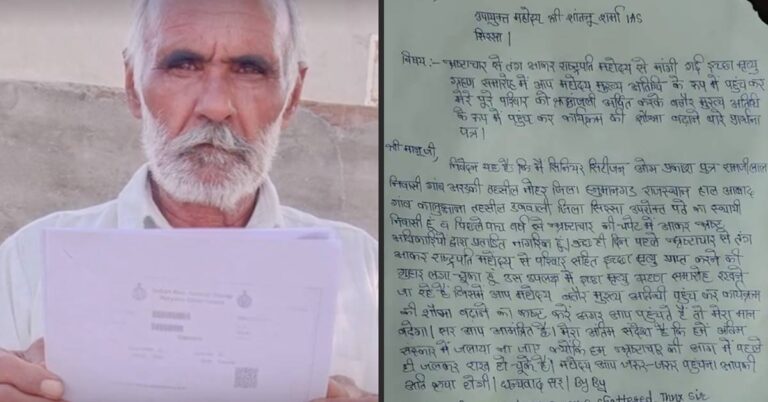 उपायुक्त महोदय श्री शांतनु शर्मा IAS
सिरसा।
विषय :- भ्रष्टाचार से तंग आकर राष्ट्रपति महोदय से मांगी गई इच्छा मृत्यु
ग्रहण समारोह में आप महोदय मुख्य अतिथि के रूप में पहुंच कर
मेरे पुरे परिवार को श्रद्धांजली अर्पित करके बतौर मुख्य अतिथि
के रूप में पहुंच कर कार्यक्रम की शोभा बढाने बारे प्रार्थना
पत्र।
श्री मान् जी,
निवेदन यह है: कि मैं सिनियर सिटीजन ओम प्रकाश पुत्र रामजीलाल
निवासी गांव अरडकी तहसील नोहर जिला हनुमानगढ राजस्थान हाल आबाद
गांव कालुआना तहसील डबवाली जिला सिरसा उपरोक्त पते का स्थायी
निवासी हूं व पिछले पांच वर्ष से भ्रष्टाचार की चपेट में आकर भ्रष्ट
अधिकारियों द्वारा प्रताडित नागरिक हूं। कुछ ही दिन पहले भ्रष्टाचार से तंग
आकर राष्ट्रपति महोदय से परिवार सहित इच्छा मृत्यु प्राप्त करने की
गुहार लगा चुका हूं इस उपलक्ष में इच्छा मृत्यु ग्रहण समारोह रखने
जा रहे हैं जिसमें आप महोदय बतौर मुख्य अतिथी पहुंच कर कार्यक्रम
की शोभा बढाने का कष्ट करें अगर आप पहुंचते हैं तो मेरा मान
बढेगा। सर आप आमंत्रित हैं। मेरा अंतिम संदेश है कि हमे अंतिम
संस्कार में जलाया ना जाए क्योंकि हम भ्रष्टाचार की आग में पहले
ही जलकर राख हो चुके हैं। महोदय आप जरूर-जरूर पहुंचना आपकी
अति कृपा होगी। धन्यवाद सर। By By
Thnx Sir